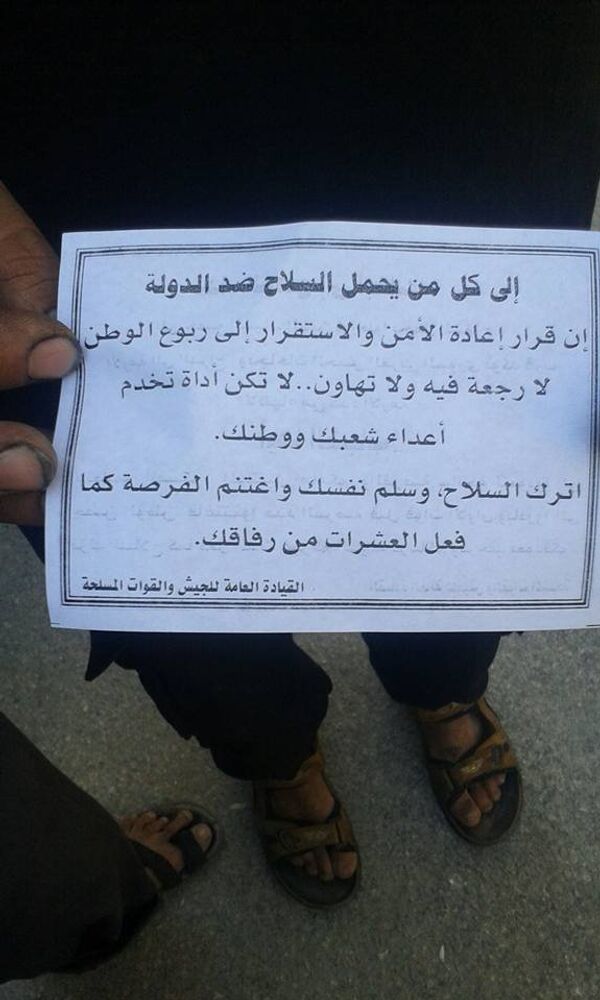 إلى كل من يحمل السلاح ضد الدولة
إن قرار إعادة الأمن والاستقرار إلى ربوع الوطن
لا رجعة فيه ولا تهاون..لا تكن أداة تخدم
أعداء شعبك ووطنك.
اترك السلاح، وسلم نفسك واغتنم الفرصة كما
فعل العشرات من رفاقك.
القيادة العامة للجيش والقوات المسلحة